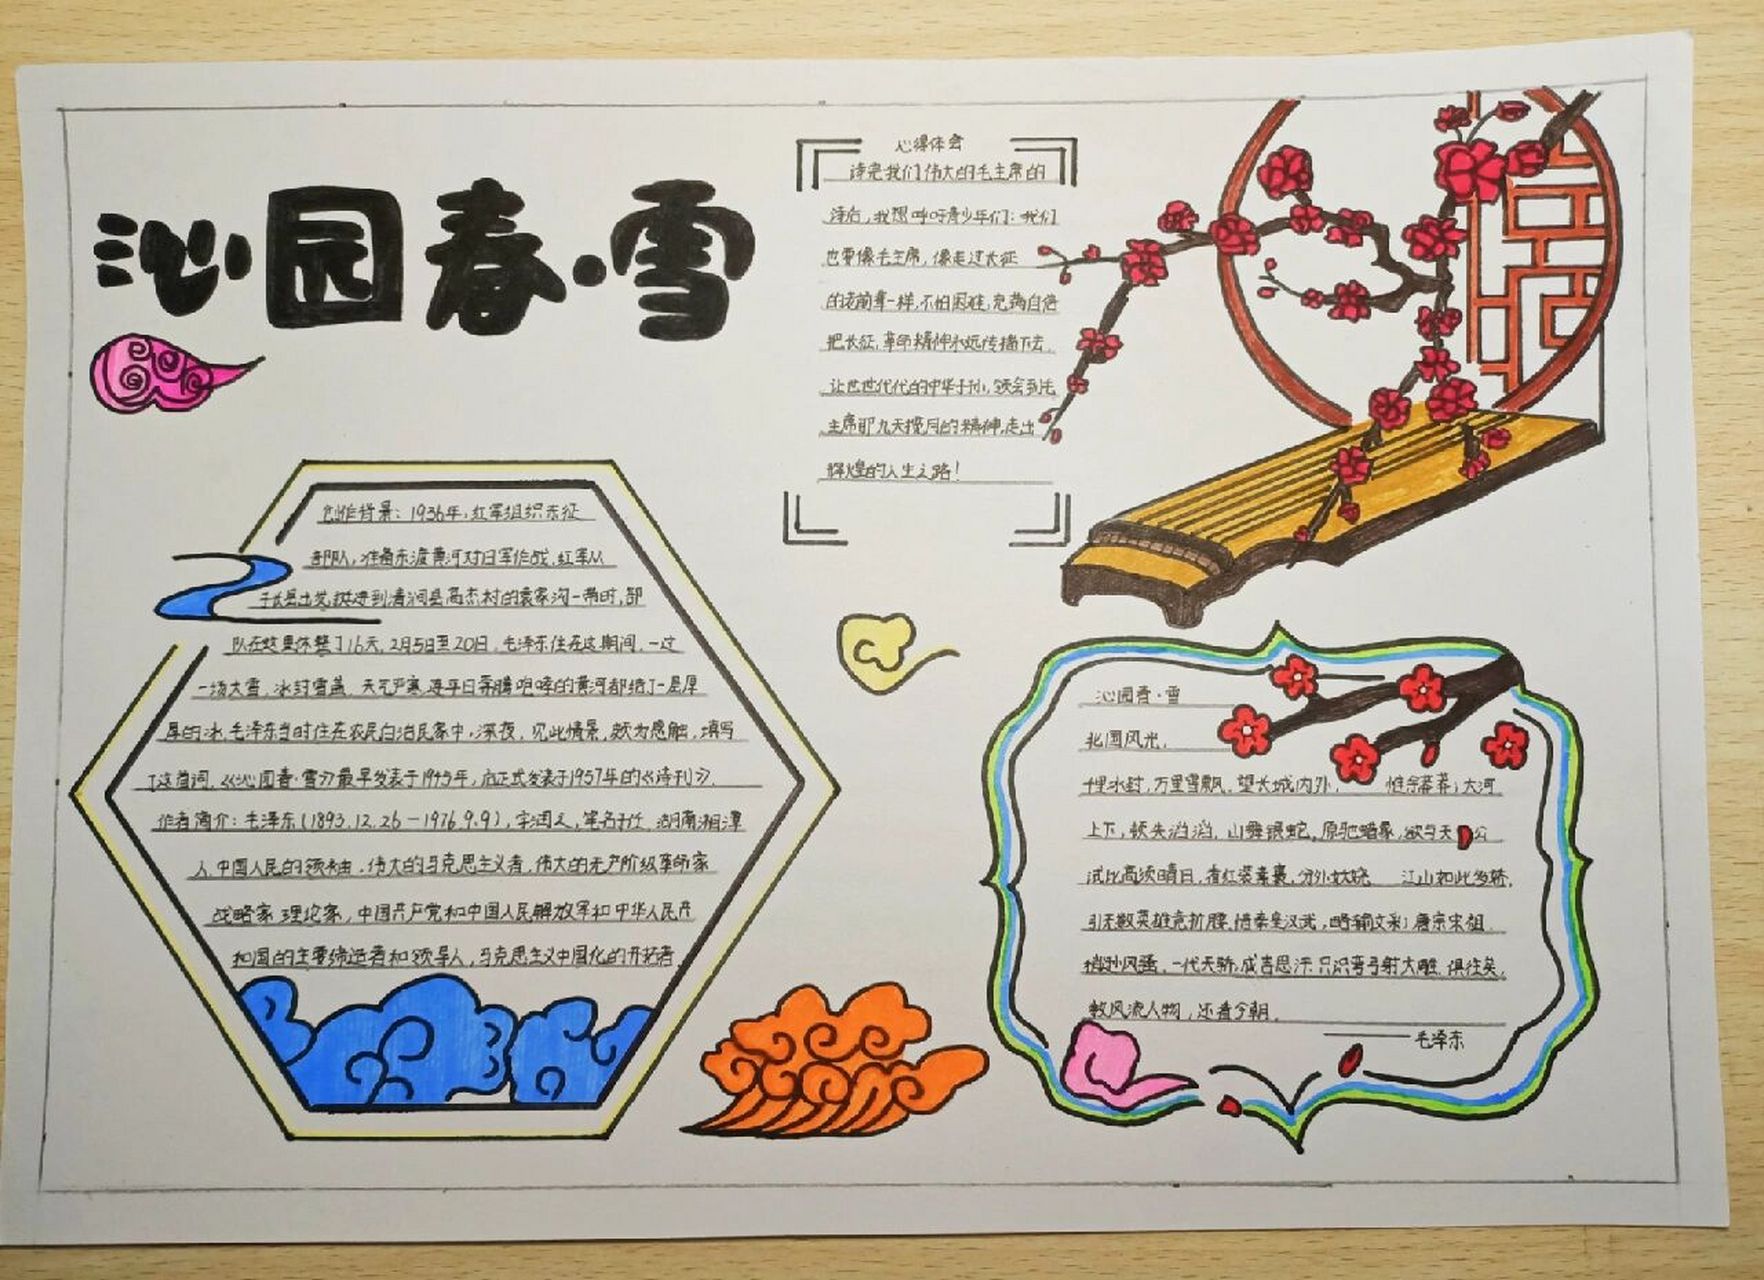 沁园春·雪
心得体会
读完我们伟大的毛主席的
诗后，我想呼吁青少年们：我们
也要像毛主席，像走过长征
的老前辈一样，不怕困难，充满自信
把长征，革命精神永远传播下去，
让世世代代的中华子孙，领会到毛
主席那九天揽月的精神，走出
辉煌的人生之路！
创作背景：1936年，红军组织东征
部队，准备东渡黄河对日军作战，红军从
子长县出发，挺进到清涧县高杰村的袁家沟一带时，部
队在这里休整了16天，2月5日至20日，毛泽东住在这期间，一过
一场大雪，冰封雪盖，天气严寒，连平日奔腾咆哮的黄河都结了一层厚
厚的冰，毛泽东当时住在农民白治民家中，深夜，见此情景，颇为感触，填写
了这首词，《沁园春·雪》最早发表于1945年，后正式发表于1957年的《诗刊》，
作者简介：毛泽东(1893.12.26－1976.9.9)，字润之，笔名子任，湖南湘潭
人，中国人民的领袖，伟大的马克思主义者，伟大的无产阶级革命家
战略家，理论家，中国共产党和中国人民解放军和中华人民共
和国的主要缔造者和领导人，马克思主义中国化的开拓者
沁园春·雪
北国风光，
千里冰封，万里雪飘，望长城内外，惟余莽莽；大河
上下，顿失滔滔，山舞银蛇，原驰蜡象，欲与天公
试比高须晴日，看红装素裹，分外妖娆 江山如此多娇，
引无数英雄竞折腰，惜秦皇汉武，略输文采；唐宗宋祖，
稍逊风骚，一代天骄，成吉思汗，只识弯弓射大雕，俱往矣，
数风流人物，还看今朝。
——毛泽东